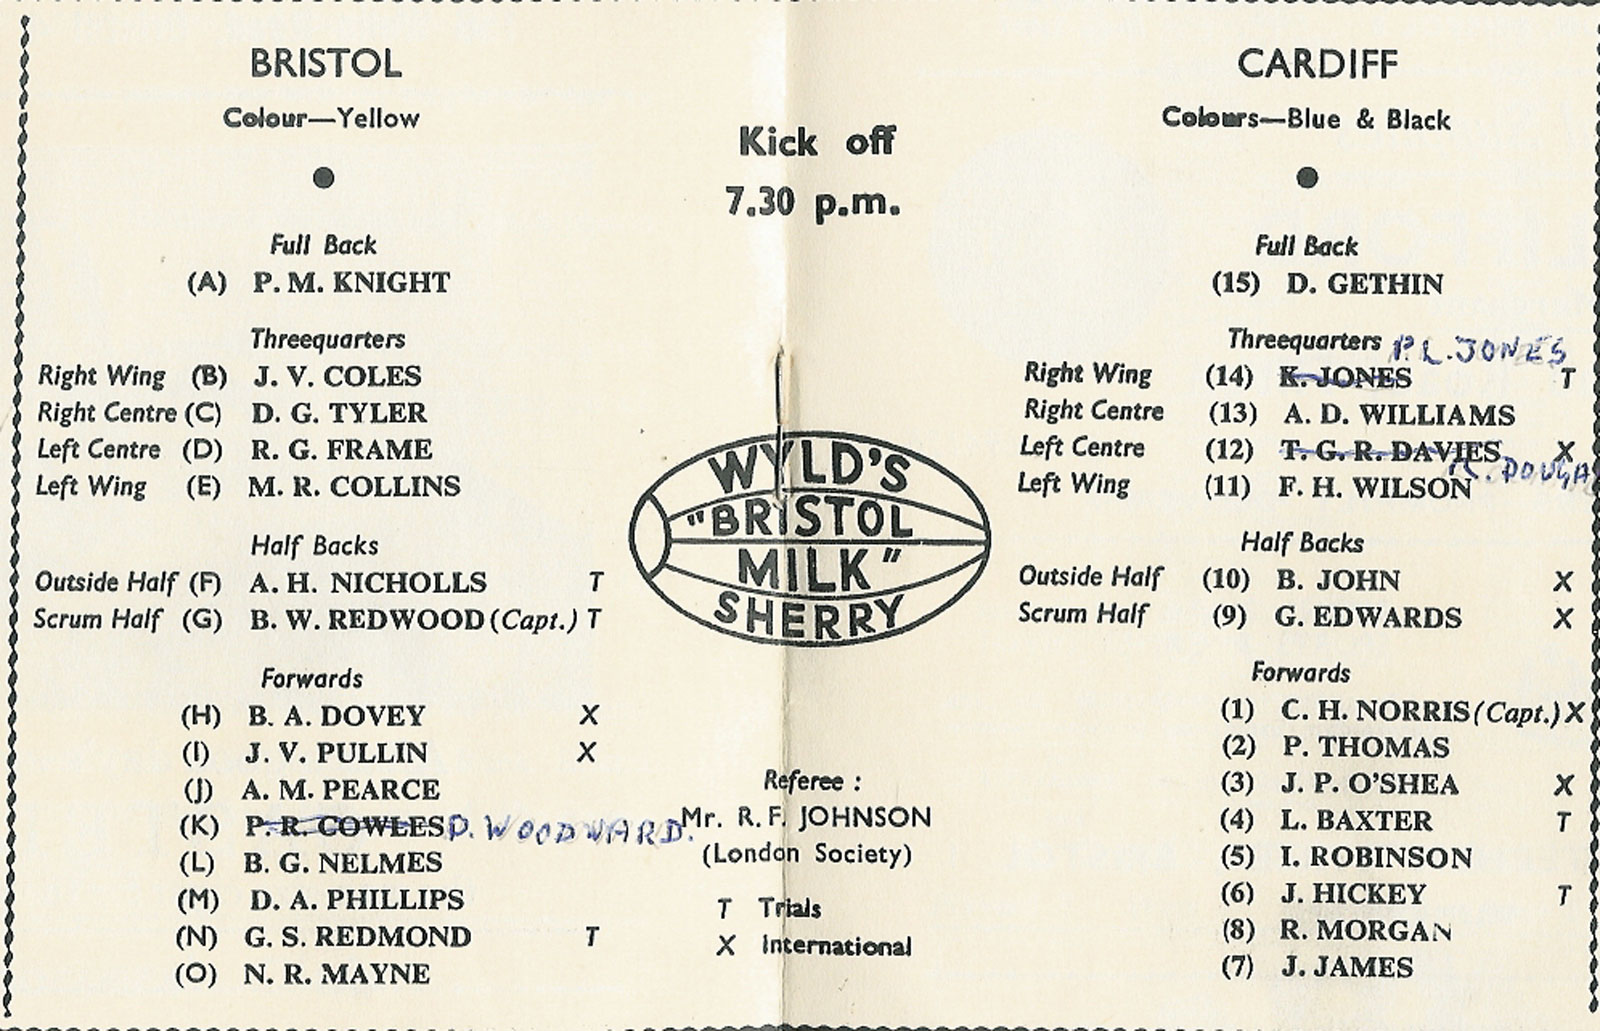 BRISTOL
Colour—Yellow
Full Back
(A) P. M. KNIGHT
Threequarters
Right Wing (B) J. V. COLES
Right Centre (C) D. G. TYLER
Left Centre (D) R. G. FRAME
Left Wing (E) M. R. COLLINS
Half Backs
Outside Half (F) A. H. NICHOLLS T
Scrum Half (G) B. W. REDWOOD (Capt.) T
Forwards
(H) B. A. DOVEY X
(I) J. V. PULLIN X
(J) A. M. PEARCE
(K) P. R. COWLES D. WOODWARD.
(L) B. G. NELMES
(M) D. A. PHILLIPS
(N) G. S. REDMOND T
(O) N. R. MAYNE
Kick off
7.30 p.m.
WYLD'S
"BRISTOL
MILK"
SHERRY
Referee :
Mr. R. F. JOHNSON
(London Society)
T Trials
X International
CARDIFF
Colours—Blue & Black
Full Back
(15) D. GETHIN
Threequarters P. L. JONES
Right Wing (14) K. JONES T
Right Centre (13) A. D. WILLIAMS
Left Centre (12) T. G. R. DAVIES X
Left Wing (11) F. H. WILSON
Half Backs
Outside Half (10) B. JOHN X
Scrum Half (9) G. EDWARDS X
Forwards
(1) C. H. NORRIS (Capt.) X
(2) P. THOMAS
(3) J. P. O'SHEA X
(4) L. BAXTER T
(5) I. ROBINSON
(6) J. HICKEY T
(8) R. MORGAN
(7) J. JAMES